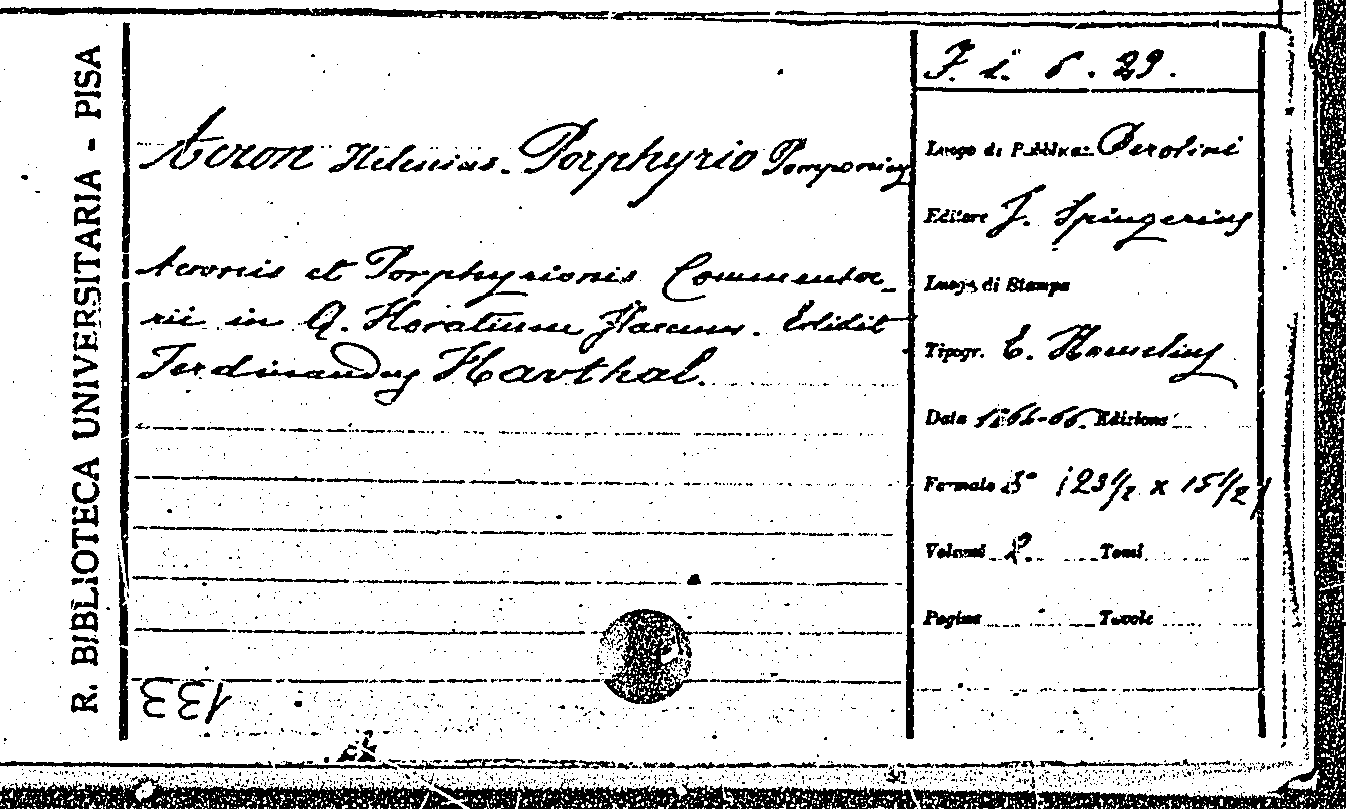 R. BIBLIOTECA UNIVERSITARIA - PISA
F. i. 6. 29.
Acron Helenius. Porphyrio Pomponius
Acronis et Porphyrionis Commenta-
rii in Q. Horatium Flaccum. Edidit
Ferdinandus Havthal.
Luogo di Pubblicaz. Berolini
Editore J. Springerius
Luogo di Stampa
Tipogr. E. Haenelius
Data 1864-66 Edizione
Formato 8° (23 1/2 x 15 1/2)
Volumi 2. Tomi
Pagine Tavole
133